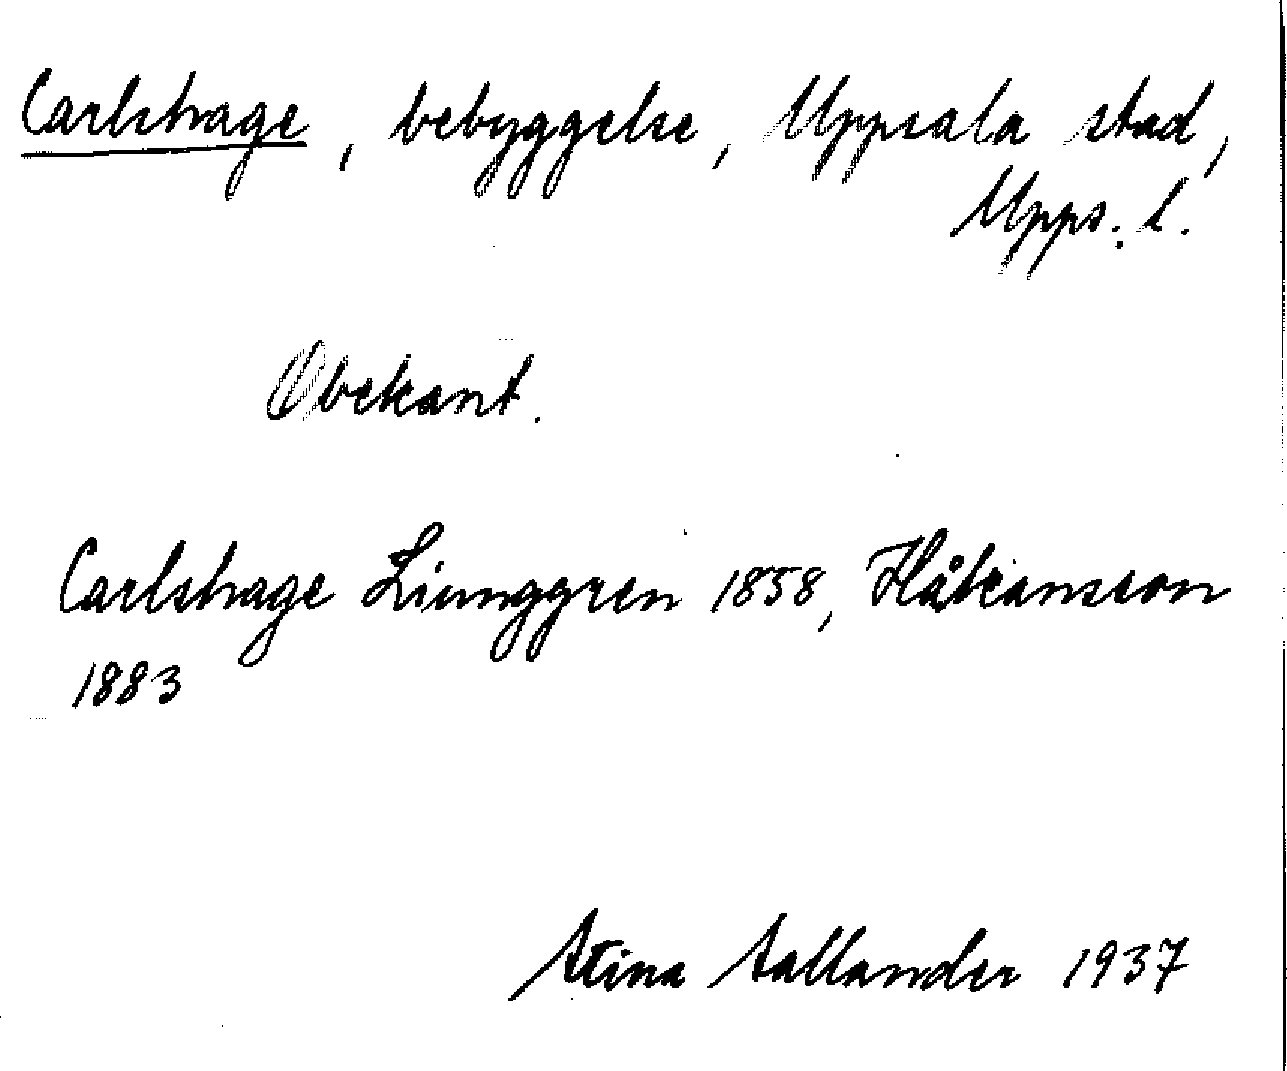 Carlshage, bebyggelse, Uppsala stad,
Upps. l.
Obekant.
Carlshage Liunggren 1858, Håkansson
1883
Stina Sallander 1937